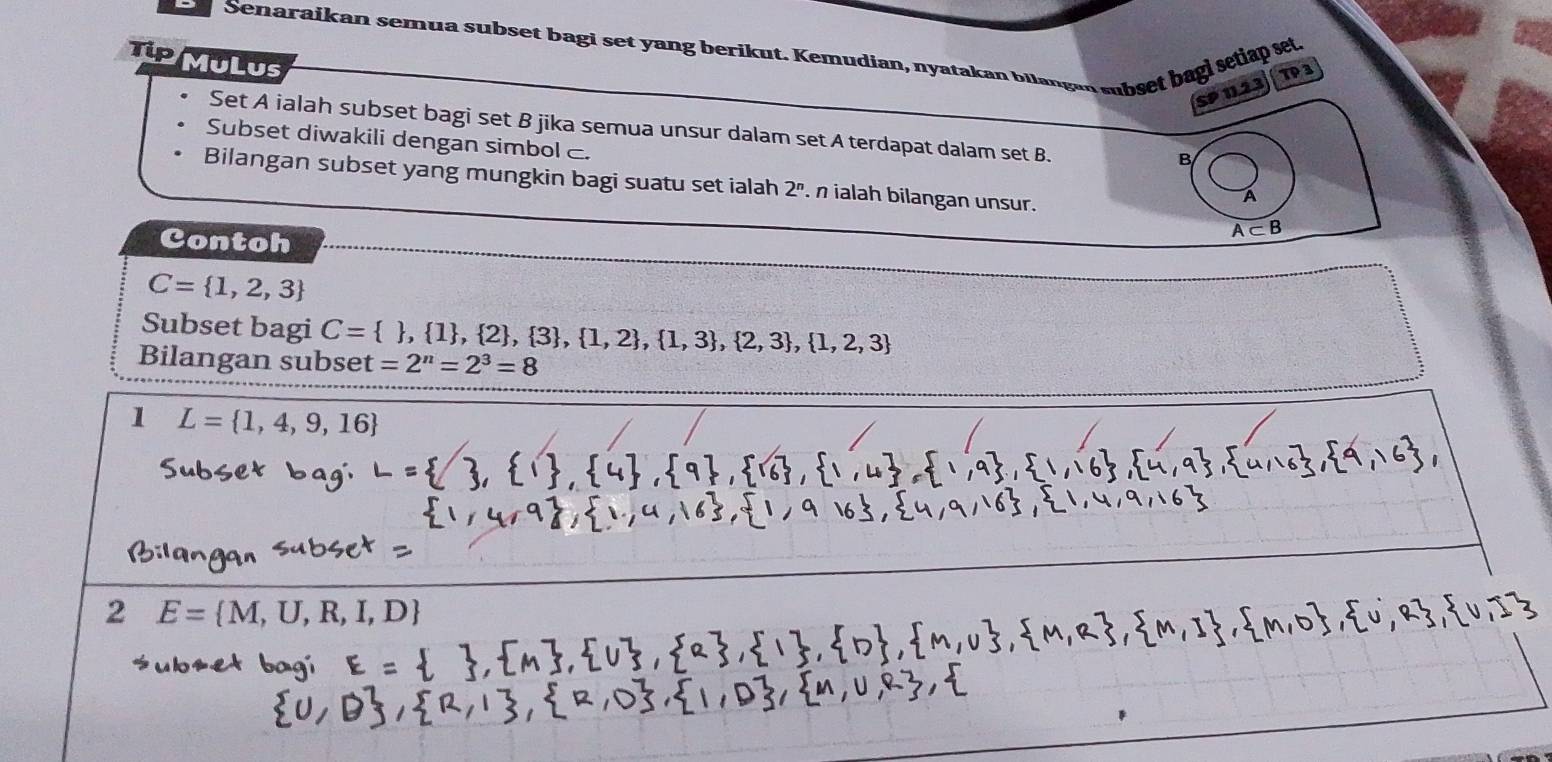 Senaraikan semua subset bagi set yang berikut. Kemudian, nyatakan bilangan subset bagi setiap set.
SP 11.2.3 TP 3
Tip MULUS
• Set A ialah subset bagi set B jika semua unsur dalam set A terdapat dalam set B.
• Subset diwakili dengan simbol ⊂.
• Bilangan subset yang mungkin bagi suatu set ialah 2ⁿ. n ialah bilangan unsur.
B
A
A ⊂ B
Contoh
C = {1, 2, 3}
Subset bagi C = { }, {1}, {2}, {3}, {1, 2}, {1, 3}, {2, 3}, {1, 2, 3}
Bilangan subset = 2ⁿ = 2³ = 8
1 L = {1, 4, 9, 16}
Subset bagi L = { }, {1}, {4}, {9}, {16}, {1, 4}, {1, 9}, {1, 16}, {4, 9}, {4, 16}, {9, 16},
{1, 4, 9}, {1, 4, 16}, {1, 9 16}, {4, 9, 16}, {1, 4, 9, 16}
Bilangan subset =
2 E = {M, U, R, I, D}
subset bagi E = { }, {M}, {U}, {R}, {I}, {D}, {M, U}, {M, R}, {M, I}, {M, D}, {U, R}, {U, I}
{U, D}, {R, I}, {R, D}, {I, D}, {M, U, R}, {